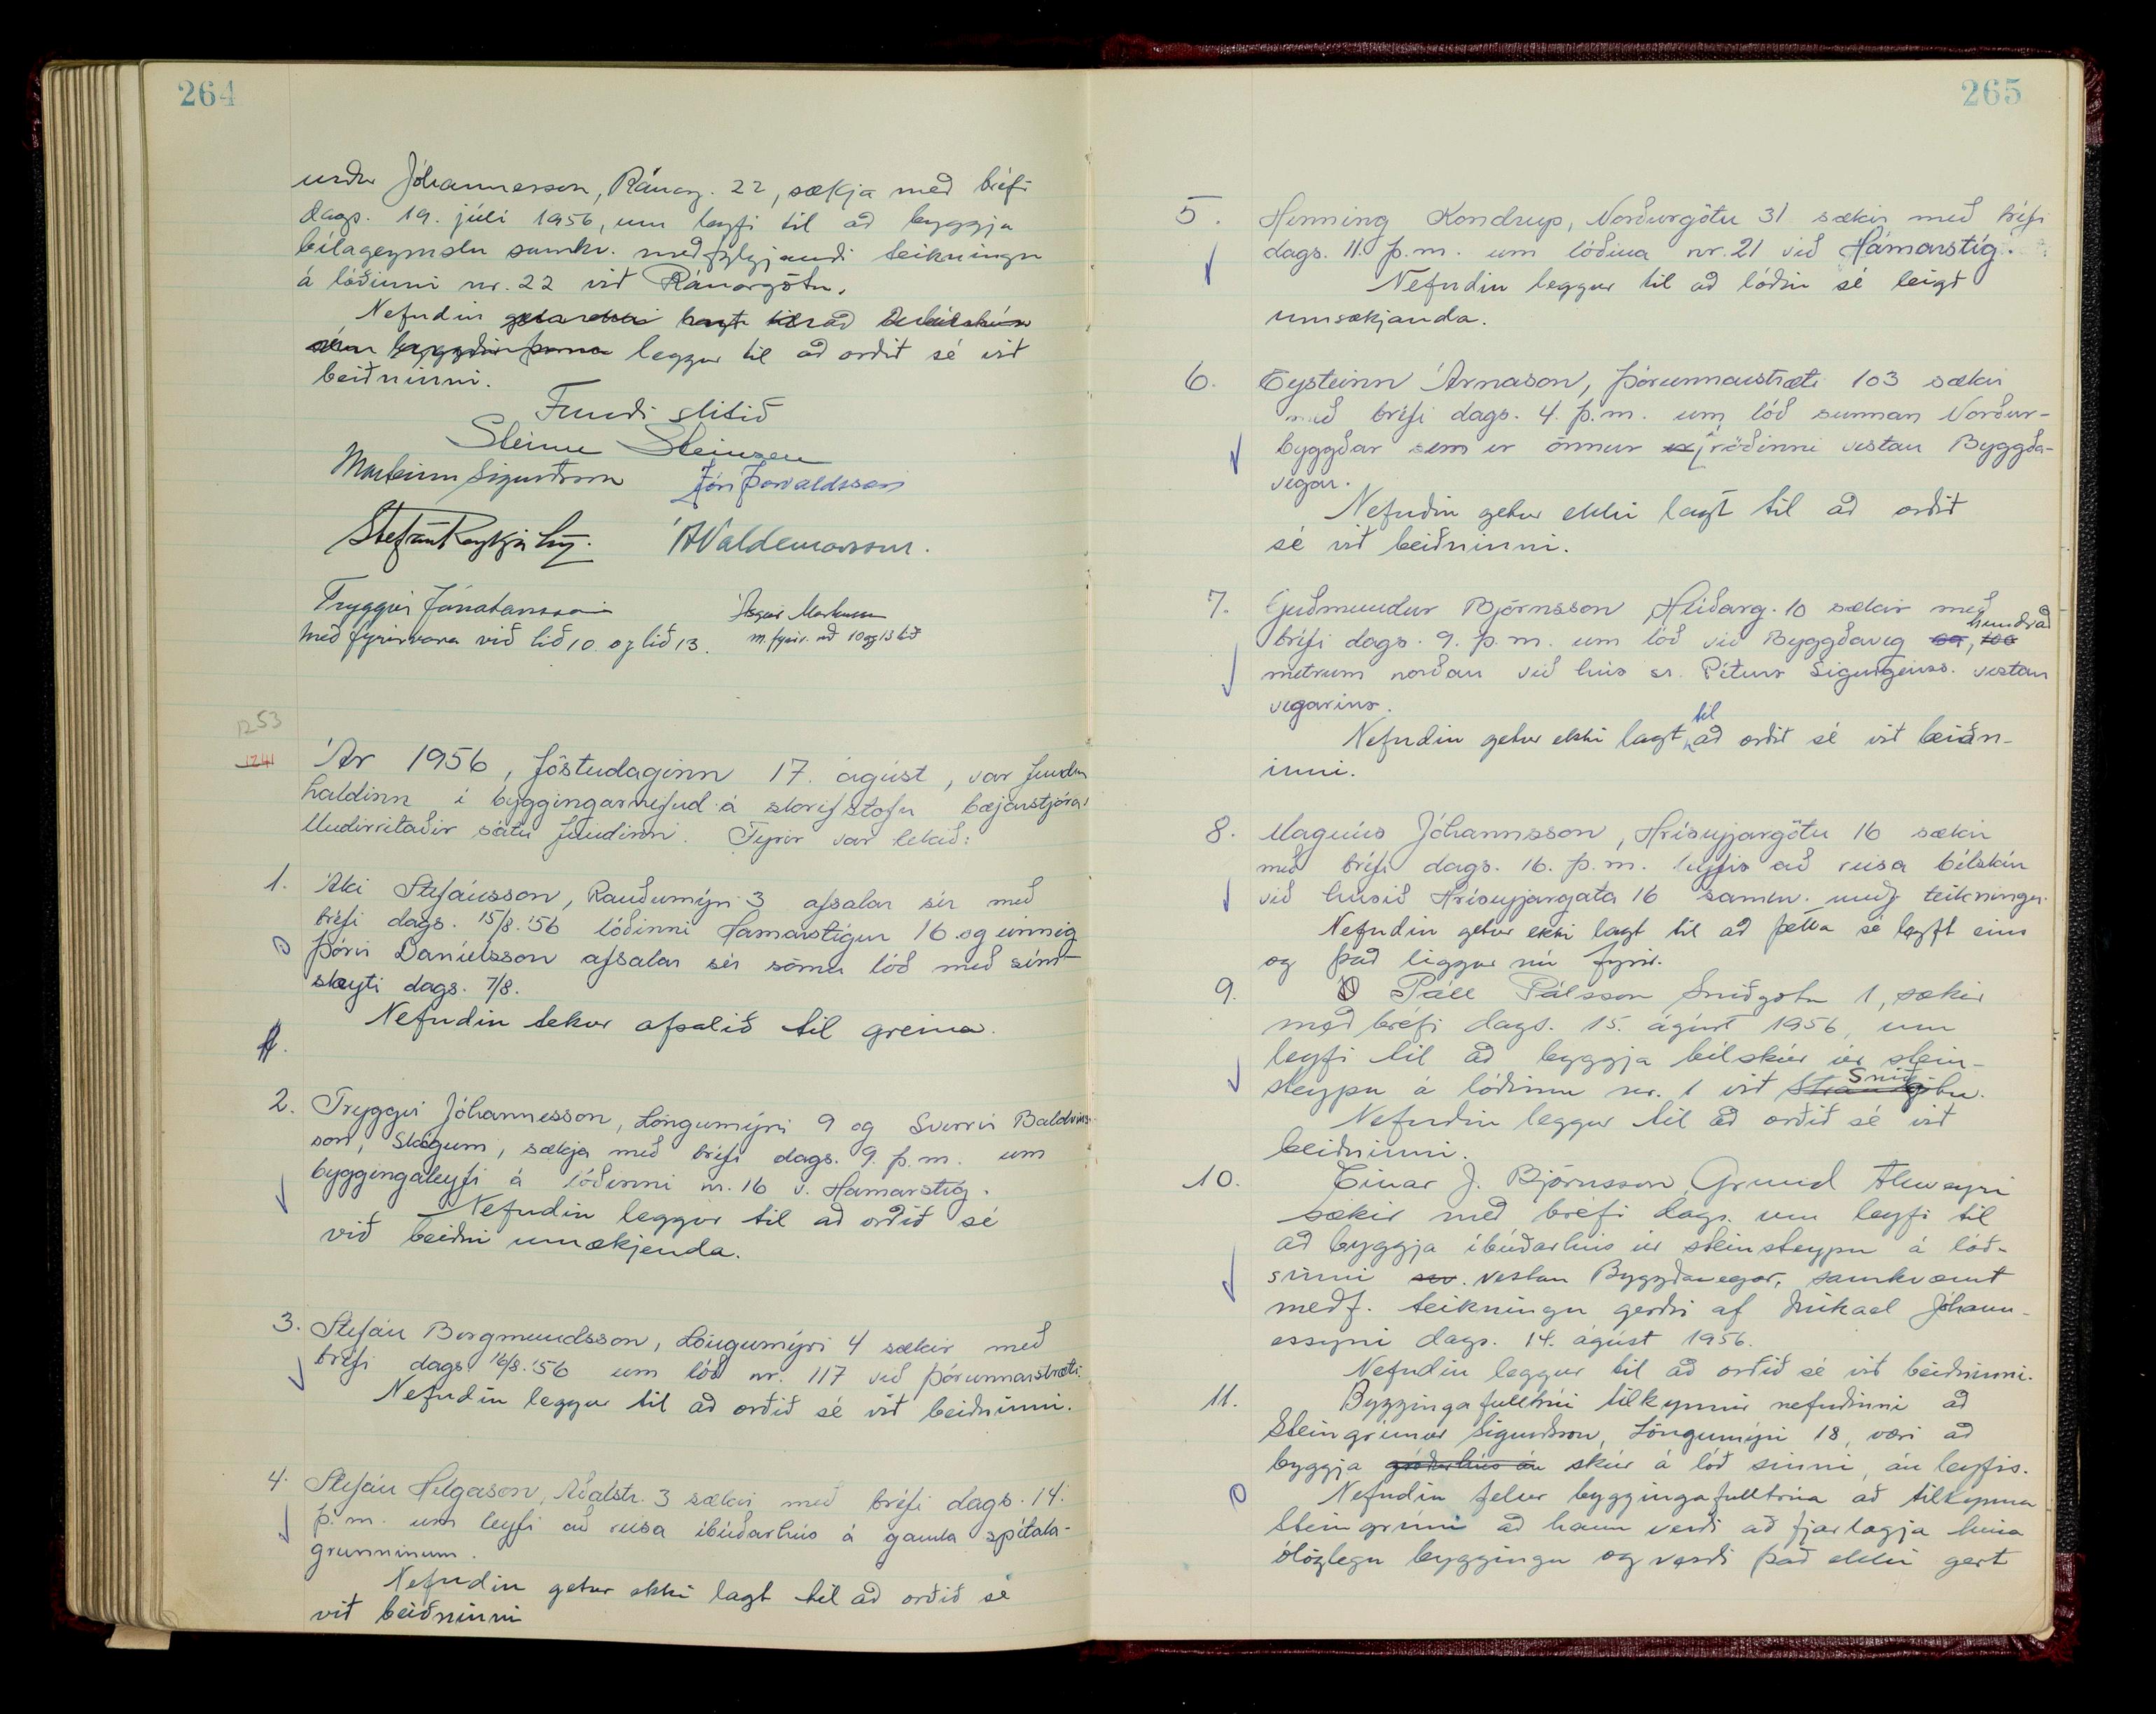 264
undur Jóhannesson, Ránarg. 22, sækja með bréfi
dags. 19. júlí 1956, um leyfi til að byggja
bílageymslu samkv. meðfylgjandi teikningu
á lóðinni nr. 22 við Ránargötu.
Nefndin
leggur til að orðið sé við
beiðninni.
Fundi slitið
Steinn Steinsen
Marteinn Sigurðsson Jón Þorvaldsson
Stefán Reykjalín. ÁValdemarsson.
Tryggvi Jónatansson Ásgeir Markússon
með fyrirvara við lið 10 og lið 13. m. fyrir. við 10 og 13 lið
1253
1241
Ár 1956, föstudaginn 17. ágúst, var fundur
haldinn í byggingarnefnd á skrifstofu bæjarstjóra.
Undirritaðir sátu fundinn. Fyrir var tekið:
1. Áki Stefánsson, Rauðumýri 3 afsalar sér með
bréfi dags. 15/8. '56 lóðinni Hamarstígur 16 og einnig
Þórir Daníelsson afsalar sér sömu lóð með sím-
skeyti dags. 7/8.
Nefndin tekur afsalið til greina.
2. Tryggvi Jóhannesson, Löngumýri 9 og Sverrir Baldvins-
son, Skógum, sækja með bréfi dags. 9. þ.m. um
byggingaleyfi á lóðinni nr. 16 v. Hamarstíg.
Nefndin leggur til að orðið sé
við beiðni umsækjenda.
3. Stefán Bergmundsson, Löngumýri 4 sækir með
bréfi dags. 16/8. '56 um lóð nr. 117 við Þórunnarstræti.
Nefndin leggur til að orðið sé við beiðninni.
4. Stefán Helgason, Aðalstr. 3 sækir með bréfi dags. 14.
þ.m. um leyfi að reisa íbúðarhús á gamla spítala-
grunninum.
Nefndin getur ekki lagt til að orðið sé
við beiðninni
265
5. Henning Kondrup, Norðurgötu 31 sækir með bréfi
dags. 11. þ.m. um lóðina nr. 21 við Hamarstíg.
Nefndin leggur til að lóðin sé leigð
umsækjanda.
6. Eysteinn Árnason, Þórunnarstræti 103 sækir
með bréfi dags. 4. þ.m. um lóð sunnan Norður-
byggðar sem er önnur í röðinni vestan Byggða-
vegar.
Nefndin getur ekki lagt til að orðið
sé við beiðninni.
7. Guðmundur Björnsson, Hlíðarg. 10 sækir með
bréfi dags. 9. þ.m. um lóð við Byggðaveg ca, 100 hundrað
metrum norðan við hús sr. Péturs Sigurgeirss. vestan
vegarins.
Nefndin getur ekki lagt til að orðið sé við beiðn-
inni.
8. Magnús Jóhannsson, Hríseyjargötu 16 sækir
með bréfi dags. 16. þ.m. leyfis að reisa bílskúr
við húsið Hríseyjargata 16 samkv. meðf. teikningu.
Nefndin getur ekki lagt til að þetta sé leyft eins
og það liggur nú fyrir.
9. Páll Pálsson Sniðgötu 1, sækir
með bréfi dags. 15. ágúst 1956, um
leyfi til að byggja bílskúr úr stein-
steypu á lóðinni nr. 1 við Strandgötu. Snið
Nefndin leggur til að orðið sé við
beiðninni.
10. Einar J. Björnsson, Grund Akureyri
sækir með bréfi dags. um leyfi til
að byggja íbúðarhús úr steinsteypu á lóð-
sinni vestan Byggðavegar, samkvæmt
meðf. teikningu gerðri af Mikael Jóhann-
essyni dags. 14. ágúst 1956.
Nefndin leggur til að orðið sé við beiðninni.
11. Byggingafulltrúi tilkynnir nefndinni að
Steingrímur Sigurðsson, Löngumýri 18, væri að
byggja gróðurhús án skúr á lóð sinni, án leyfis.
Nefndin felur byggingafulltrúa að tilkynna
Steingrími að hann verði að fjarlægja hina
ólöglegu byggingu og verði það ekki gert